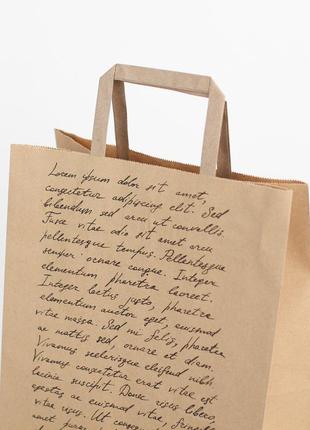 Lorem ipsum dolor sit amet,
consectetur adipiscing elit. Sed
bibendum sed arcu ut convallis.
Fusce vitae odio sit amet arcu
pellentesque tempus. Pellentesque
semper ornare congue. Integer
elementum pharetra laoreet.
Integer lectus justo, pharetra
elementum auctor eget, euismod
vitae massa. Sed mi felis, pharetra
ac mattis sed, ornare et diam.
Vivamus scelerisque eleifend nibh
Vivamus consectetur erat vitae est
lacinia suscipit. Donec risus libero,
egestas ac euismod vitae,
vitae risus. Ut
amet